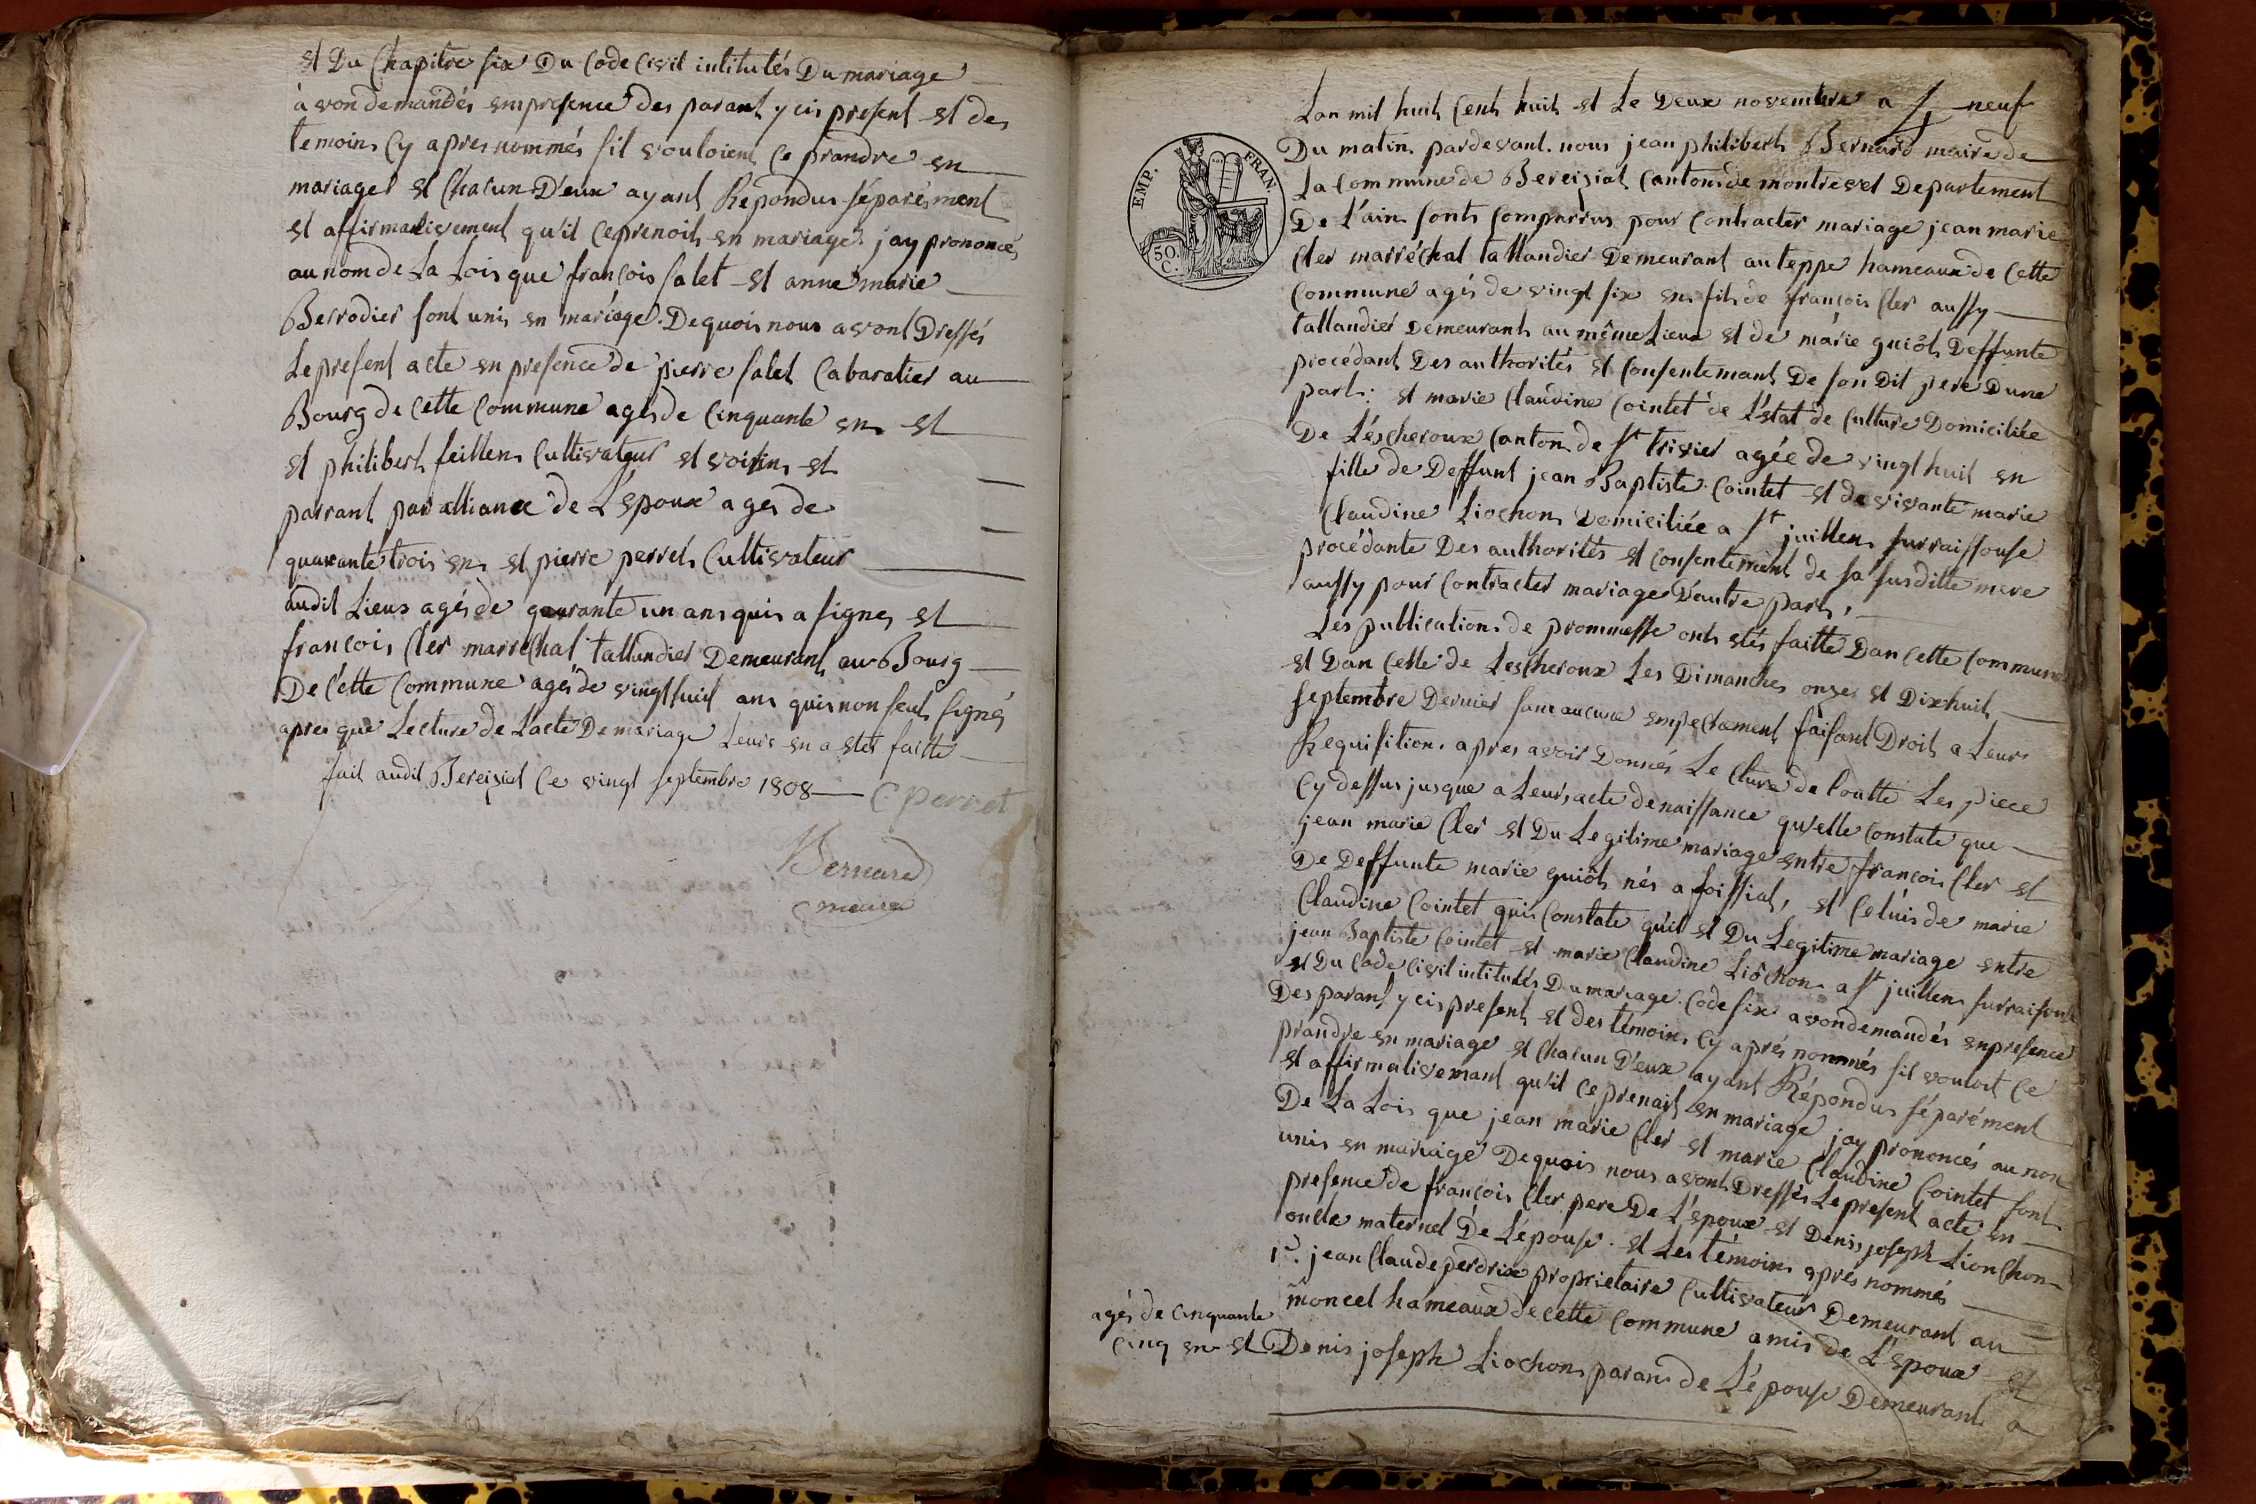 et Du Chapitre six Du Code Civil intitulés Du mariage
à von demandés en presence des parant y cis present et des
temoins Cy apres nommés sil vouloient Ce prandre en
mariages et Chacun D'eux ayant Repondus séparément
et affirmativement qu'il Ceprenoit en mariages jay prononcé
au nom de La Lois que françois salet et anne marie
Berrodier sont unis en mariage. De quois nous avont Dressés
Le present acte en presence de pierre salet Cabaratier au
Bourg de Cette Commune agés de Cinquante ens et
et philibert feillens Cultivateur et voisin et
parrant par alliance de L'époux ages de
quarante trois ens et pierre perret Cultivateur
audit Lieux agés de quarante un ans quis a signes et
françois Cler marréchal tallandier Demeurant au Bourg
De Cette Commune agés de vingt huit ans quis non seut signés
apres que Lecture de L'acte De mariage Leurs en a etés faitte
fait audit Bereiziat Ce vingt septembre 1808 C perret
Bernard
maire
EMP. FRAN.
50.
C.
Lan mil huit Cent huit et Le Deux novembre a neuf
Du matin pardevant nous jean philibert Bernard maire de
La Commune de Bereiziat Canton de montrevel Departement
De L'ain sont Comparrus pour Contracter mariage jean marie
Cler marréchal tallandier Demeurant au teppe hameaux de Cette
Commune agés de vingt six ens fils de françois Cler aussy
tallandier Demeurant au même Lieux et de marie guiôt Deffunte
procédant Des authorités et Consentemant De son Dit pere Dune
part: et marie Claudine Cointet de L'état de Culture Domiciliée
De Léscheroux Canton de St trivier agée de vingt huit en
fille de Deffunt jean Baptiste Cointet et de vivante marie
Claudine Liochon Domiciliée a St juillen surraissouse
procédante Des authorités et Consentement de sa susditte mere
aussy pour Contracter mariage D'autre part,
Les publications de prommesse ont etés faitte Dan Cette Commune
et Dan Celle de Lescheroux Les Dimanches onze et Dixhuit
septembre Dernier sans aucune empechament faisant Droit a Leur
Requisition. apres avoir Donnés Le Cture de Toutte Les piece
Cy dessus jusque a Leurs acte de naissance qu'elle Constate que
jean marie Cler et Du Legitime mariage entre françois Cler et
De Deffunte marie guiôt nés a foissiat, et Celuis de marie
Claudine Cointet quis Constate quil et Du Legitime mariage entre
jean Baptiste Cointet et marie Claudine Liôchon a St juillen surraisouse
et Du Code Civil intitulés Du mariage Code six avon demandés en presence
Des parant y cis present et des témoins Cy aprés nommés sil vouloit Ce
prandre en mariage et Chacun D'eux ayant Répondus séparément
et affirmativemant qu'il Ceprenait en mariage jay prononcés au non
De La Lois que jean marie Cler et marie Claudine Cointet sont
unis en mariage De quois nous avont Dressés Le present acte en
presence de françois Cler pere De L'époux et Denis joseph Lionchon
oncle maternel De L'épouse. et Les témoins aprés nommés
1°. jean Claude perdrix proprietaire Cultivateur Demeurant au
moncel hameaux de cette Commune amis de L'époux et
agés de Cinquante
Cinq ens et
Denis joseph Liochon paran de L'épouse Demeurant a